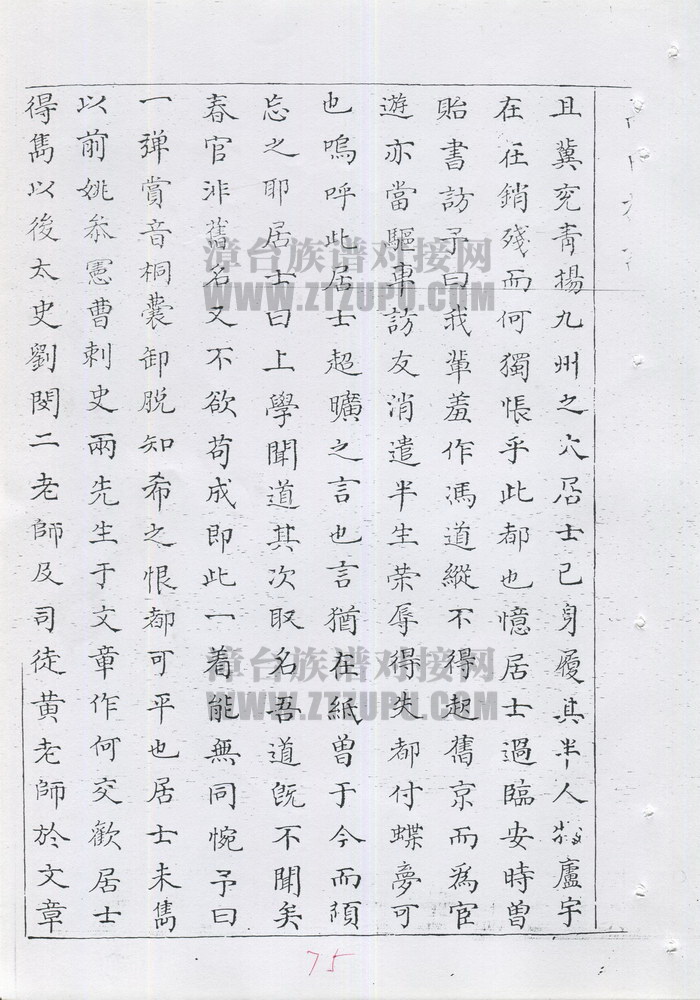 且冀兗靑揚九州之大居士已身履其半人物廬宇
在在銷殘而何獨悵乎此都也憶居士過臨安時曾
貽書訪予曰我輩羞作馮道縱不得起舊京而爲宦
遊亦當驅車訪友消遣半生荣辱得失都付蝶夢可
也嗚呼此居士超曠之言也言猶在紙曾于今而頓
忘之耶居士曰上學聞道其次取名吾道旣不聞矣
春官非舊名又不欲苟成即此一着能無同惋予曰
一弹賞音桐囊卸脱知希之恨都可平也居士未雋
以前姚叅憲曹刺史兩先生于文章作何交歡居士
得雋以後太史劉閔二老師及司徒黄老師於文章
漳台族谱对接网
WWW.ZTZUPU.COM
漳台族谱对接网
WWW.ZTZUPU.COM
75